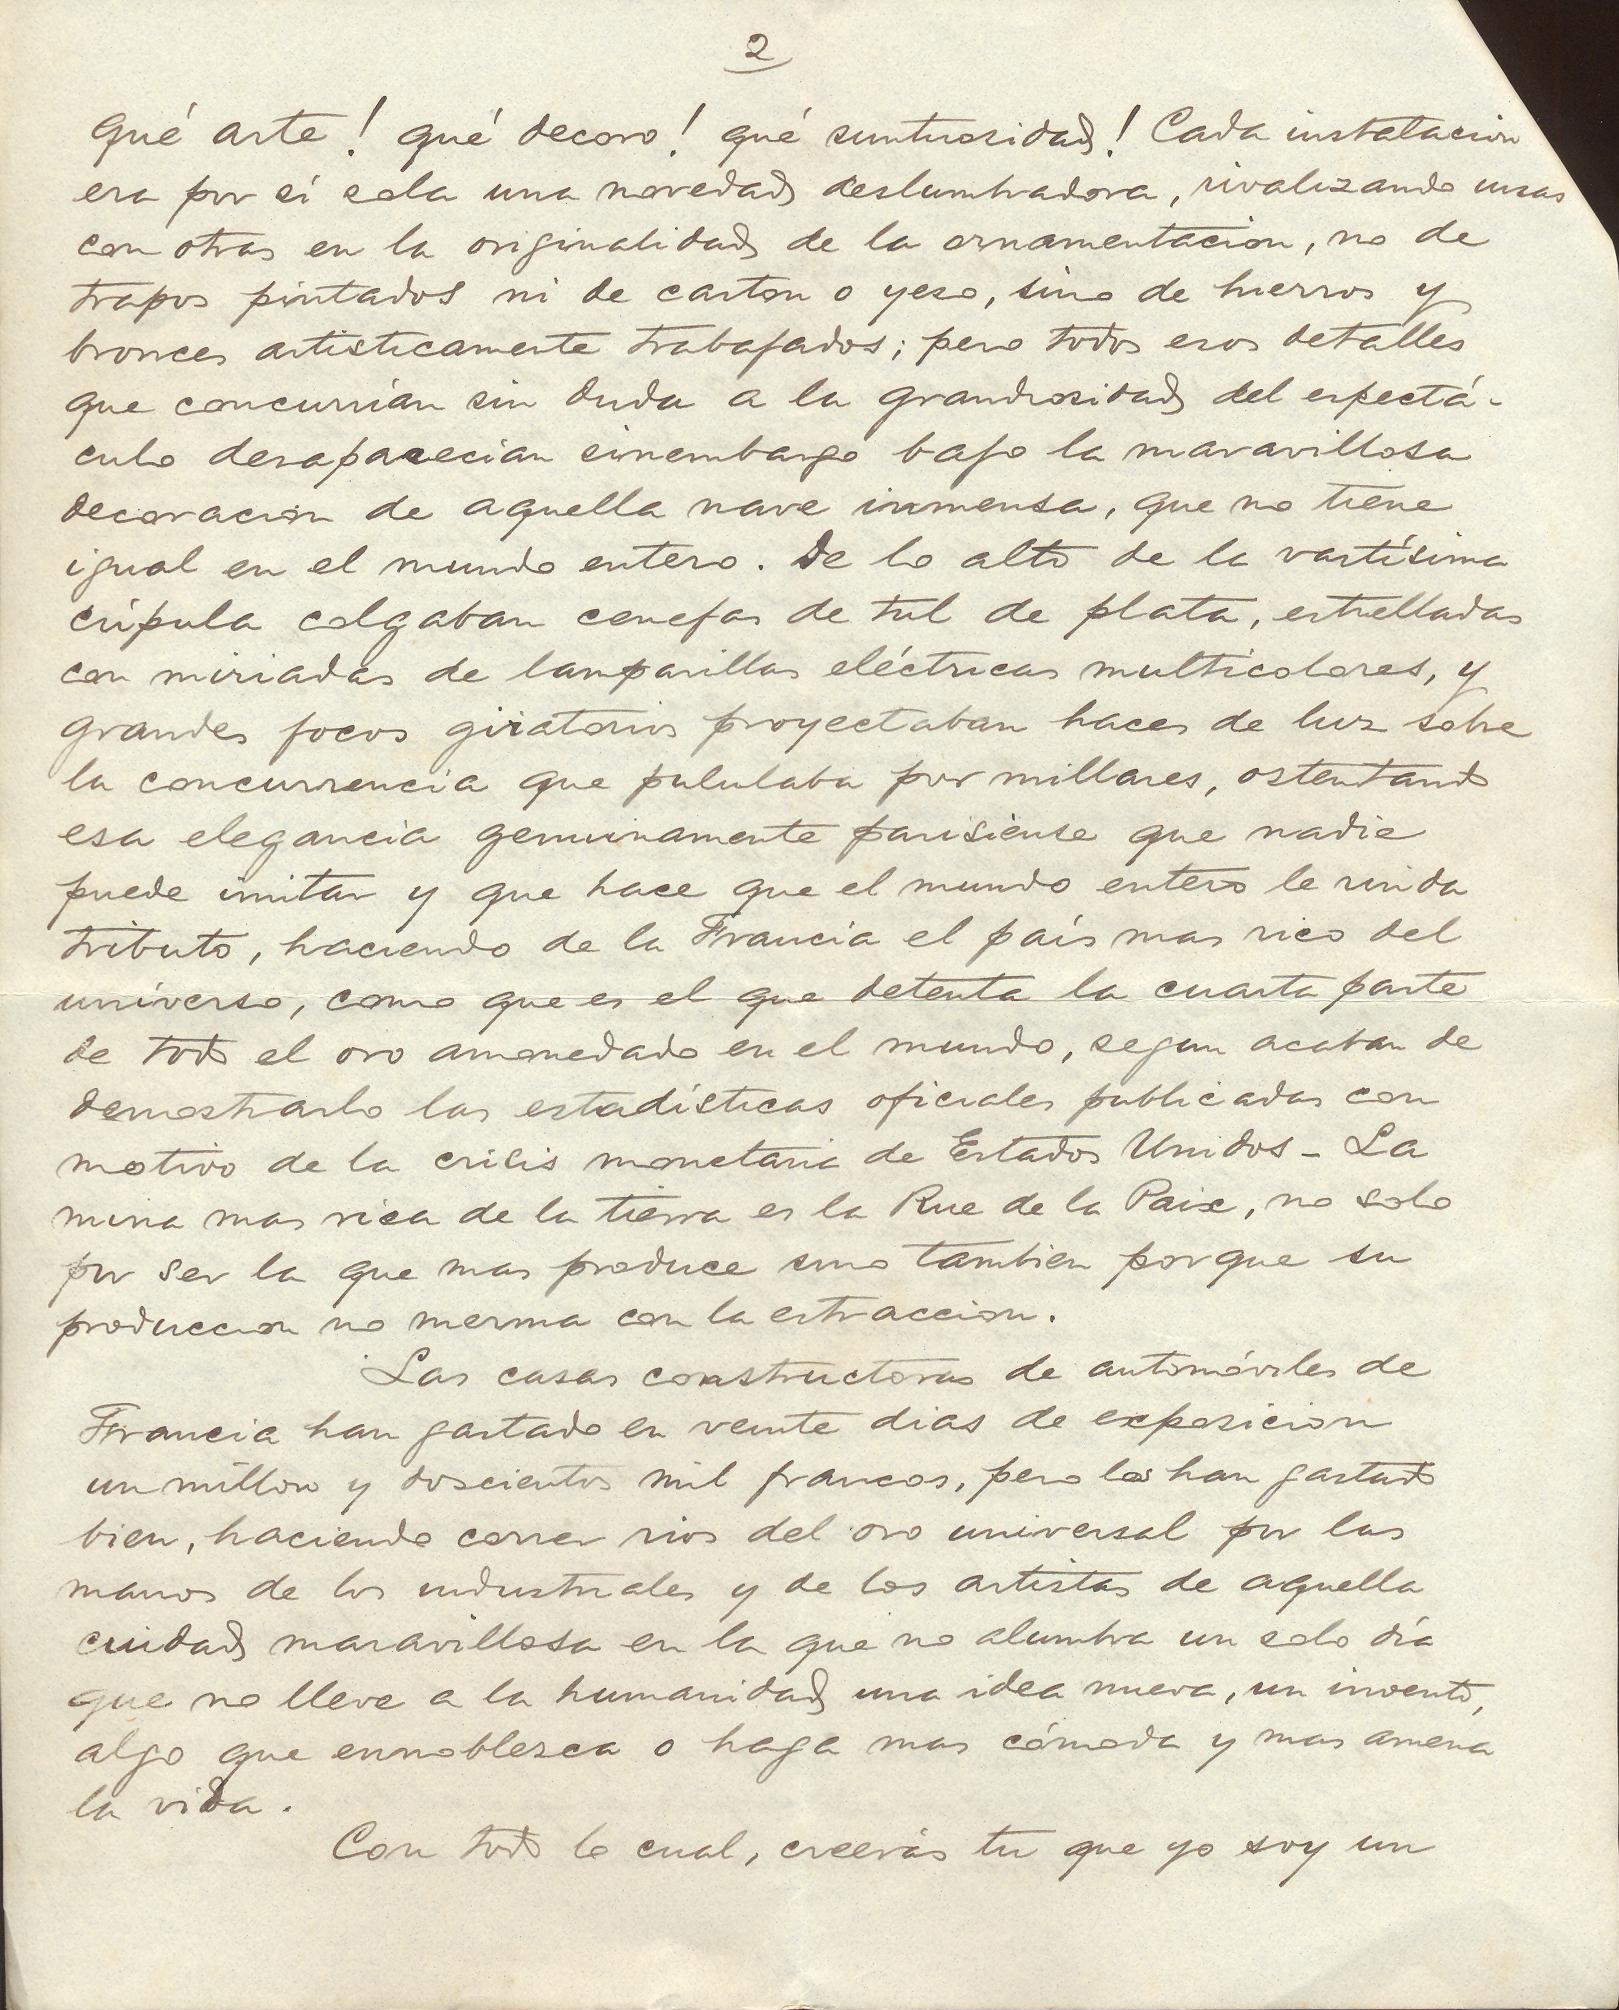 2
qué arte! qué decoro! qué suntuosidad! Cada instalacion
era por sí sola una novedad deslumbradora, rivalizando unas
con otras en la originalidad de la ornamentacion, no de
trapos pintados ni de carton o yeso, sino de hierros y
bronces artisticamente trabajados; pero todos esos detalles
que concurrían sin duda a la grandiosidad del espectá-
culo desaparecian sinembargo bajo la maravillosa
decoracion de aquella nave inmensa, que no tiene
igual en el mundo entero. De lo alto de la vastísima
cúpula colgaban cenefas de tul de plata, estrelladas
con miriadas de lamparillas eléctricas multicolores, y
grandes focos giratorios proyectaban haces de luz sobre
la concurrencia que pululaba por millares, ostentando
esa elegancia genuinamente parisiense que nadie
puede imitar y que hace que el mundo entero le rinda
tributo, haciendo de la Francia el país mas rico del
universo, como que es el que detenta la cuarta parte
de todo el oro amonedado en el mundo, segun acaban de
demostrarlo las estadísticas oficiales publicadas con
motivo de la crisis monetaria de Estados Unidos - La
mina mas rica de la tierra es la Rue de la Paix, no solo
por ser la que mas produce sino tambien porque su
produccion no merma con la estraccion.
Las casas constructoras de automóviles de
Francia han gastado en veinte dias de exposicion
un millon y doscientos mil francos, pero los han gastado
bien, haciendo correr rios del oro universal por las
manos de los industriales y de los artistas de aquella
ciudad maravillosa en la que no alumbra un solo día
que no lleve a la humanidad una idea nueva, un invento,
algo que ennoblezca o haga mas cómoda y mas amena
la vida.
Con todo lo cual, creerás tu que yo soy un